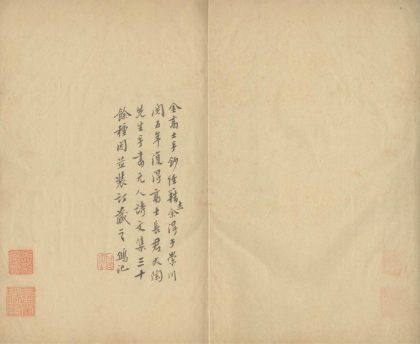 金高士手鈔經籍志余得于榮川
閱五年復得高士長君天陶
先生手書元人詩文集三十
餘種因并裝訂藏之 鴻記